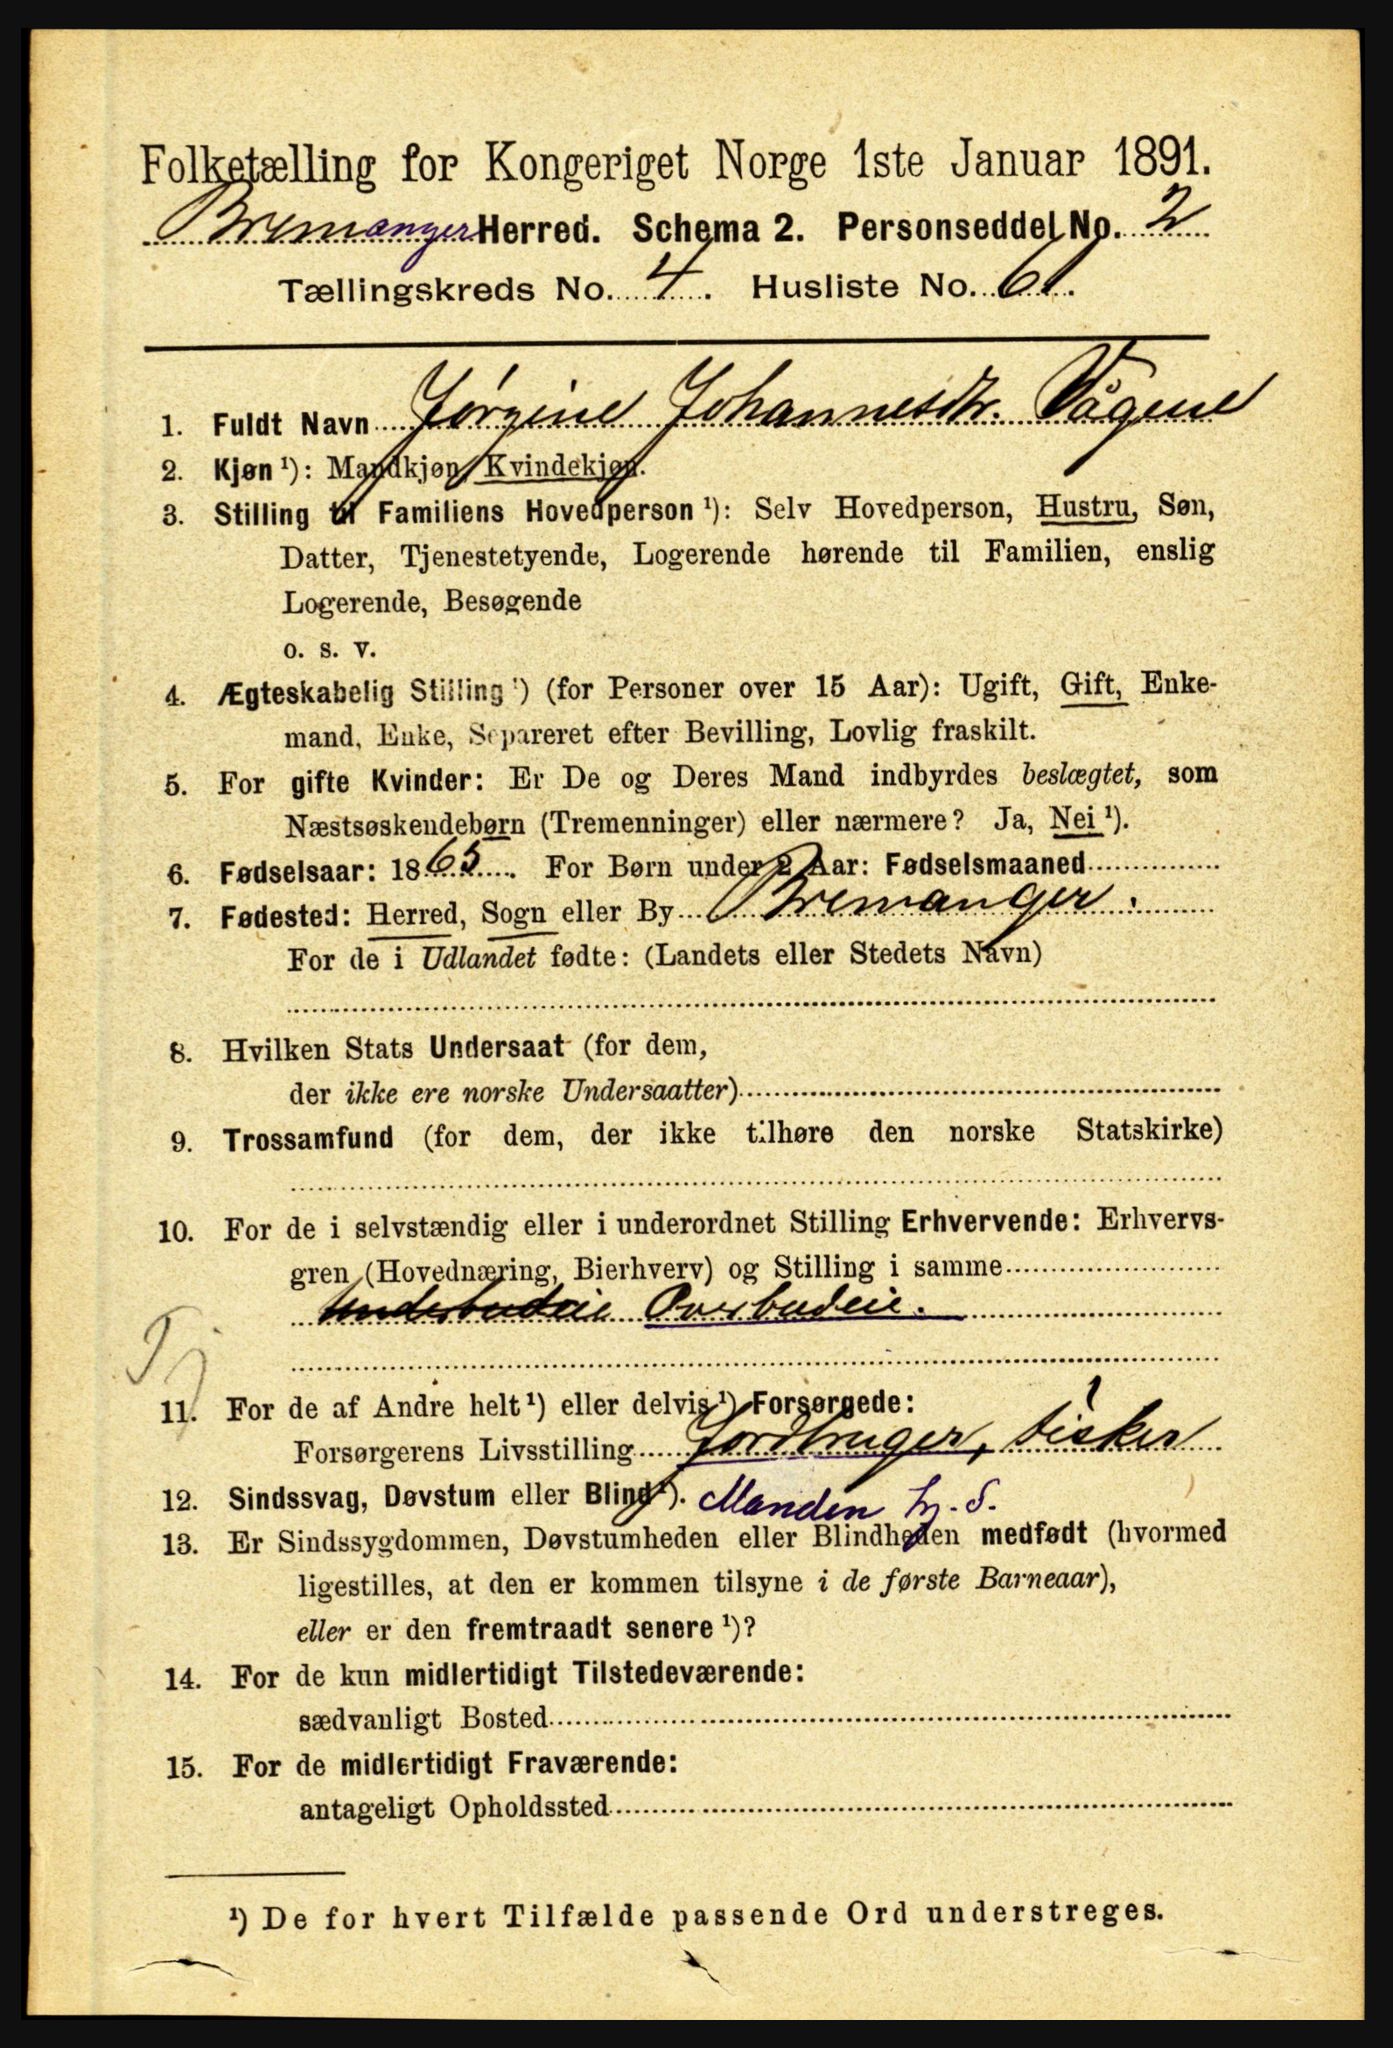 Folketælling for Kongeriget Norge 1ste Januar 1891.
Bremanger Herred. Schema 2. Personseddel No. 2
Tællingskreds No. 4. Husliste No. 61.
1. Fuldt Navn Jørgine Johannesdtr. Vågene
2. Kjøn ¹): Mandkjøn, Kvindekjøn.
3. Stilling til Familiens Hovedperson ¹): Selv Hovedperson, Hustru, Søn,
Datter, Tjenestetyende, Logerende hørende til Familien, enslig
Logerende, Besøgende
o. s. v.
4. Ægteskabelig Stilling ¹) (for Personer over 15 Aar): Ugift, Gift, Enke-
mand, Enke, Separeret efter Bevilling, Lovlig fraskilt.
5. For gifte Kvinder: Er De og Deres Mand indbyrdes beslægtet, som
Næstsøskendebørn (Tremenninger) eller nærmere? Ja, Nei ¹).
6. Fødselsaar: 1865. For Børn under 2 Aar: Fødselsmaaned
7. Fødested: Herred, Sogn eller By Bremanger.
For de i Udlandet fødte: (Landets eller Stedets Navn)
8. Hvilken Stats Undersaat (for dem,
der ikke ere norske Undersaatter)
9. Trossamfund (for dem, der ikke tilhøre den norske Statskirke)
10. For de i selvstændig eller i underordnet Stilling Erhvervende: Erhvervs-
gren (Hovednæring, Bierhverv) og Stilling i samme
Underbudeie Overbudeie.
Tj
11. For de af Andre helt ¹) eller delvis ¹) Forsørgede:
Forsørgerens Livsstilling Jordbruger, fisker
12. Sindssvag, Døvstum eller Blind ¹). Manden h. s.
13. Er Sindssygdommen, Døvstumheden eller Blindheden medfødt (hvormed
ligestilles, at den er kommen tilsyne i de første Barneaar),
eller er den fremtraadt senere ¹)?
14. For de kun midlertidigt Tilstedeværende:
sædvanligt Bosted
15. For de midlertidigt Fraværende:
antageligt Opholdssted
¹) De for hvert Tilfælde passende Ord understreges.